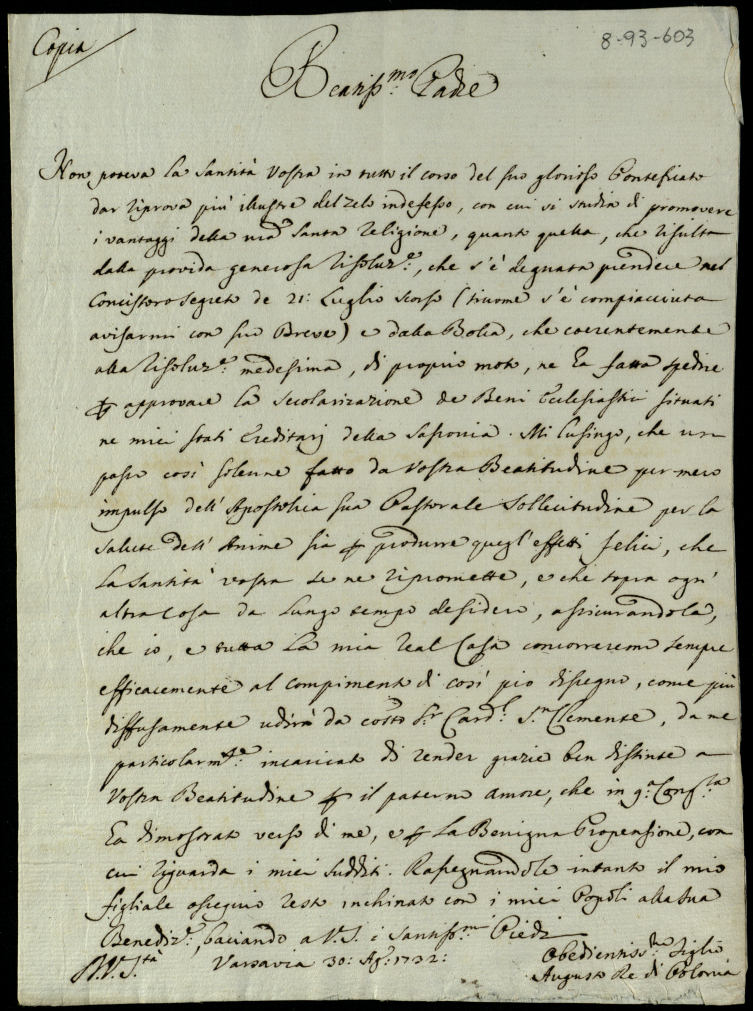 Copia
8-93-603
Beatiss.mo Padre
Non poteva la Santità Vostra in tutto il corso del suo glorioso Pontificato
dar riprova più illustre del zelo indefesso, con cui si studia di promovere
i vantaggi della nra Santa Religione, quanto quella, che risulta
dalla provida generosa risoluz.e, che s'è degnata prendere nel
Concistoro segreto de 21: Luglio scorso (siccome s'è compiacciuta
avisarmi con suo Breve) e dalla Bolla, che coerentemente
alla risoluz.e medesima, di proprio moto, ne ha fatta spedire
p approvare la secolarizazione de Beni Ecclesiastici situati
ne miei stati Ereditarj della Sassonia. Mi lusingo, che un
passo così solenne fatto da Vostra Beatitudine per mero
impulso dell'Apostolica sua Pastorale Sollicitudine per la
salute dell'Anime sia p produrre quegl'effetti felici, che
la Santità vostra se ne ripromette, e che sopra ogn'
altra cosa da lungo tempo desidero, assicurandola,
che io, e tutta la mia real Casa concorreremo sempre
efficacemente al compimento di così pio disegno, come più
diffusamente udirà da costo Sr Card.l Sn Clemente, da me
particolarm.te incaricato di render grazie ben distinte a
Vostra Beatitudine p il paterno amore, che in q.a Cong.ra
ha dimostrato verso di me, e p la Benigna Propensione, con
cui riguarda i miei sudditi. Rassegnandole intanto il mio
figliale ossequio resto inchinato con i miei Popoli alla sua
Benediz.e, baciando a V.S. i Santiss.mi Piedi
D.V.S.tà Varsavia 30: Ag.o 1732:
Obedientiss.mo Figlio
Augusto Re di Polonia